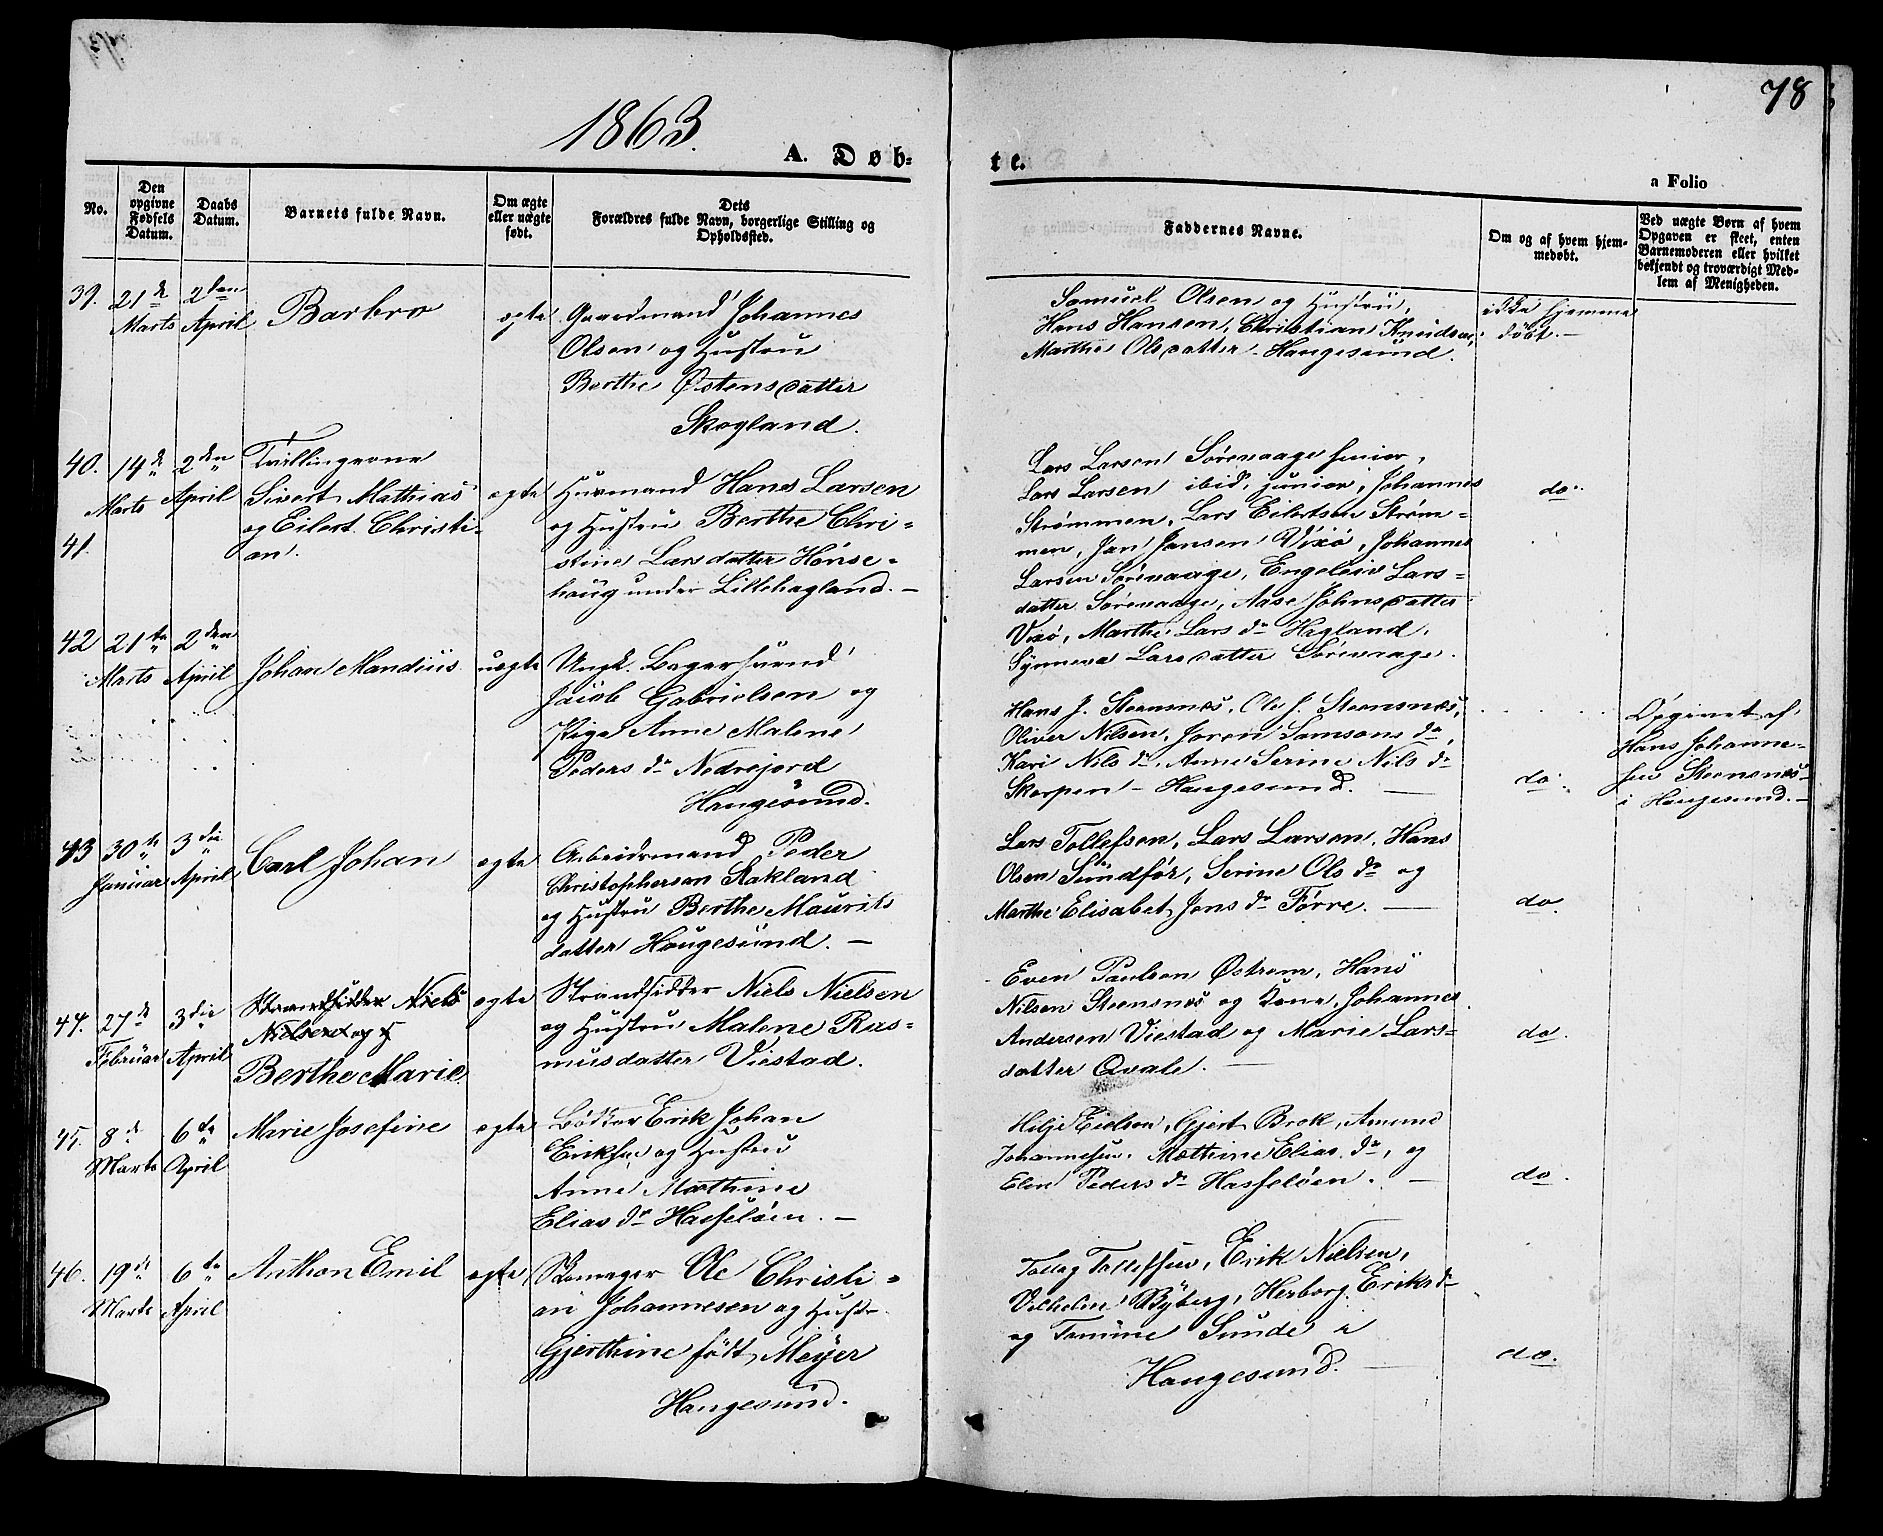 78
1863.
A. Døb-
te.
a Folio
No.
Den
opgivne
Fødsels
Datum.
Daabs
Datum.
Barnets fulde Navn.
Om ægte
eller uægte
født.
Dets
Forældres fulde Navn, borgerlige Stilling og
Opholdssted.
Faddernes Navne.
Om og af hvem hjem-
medøbt.
Ved uægte Børn af hvem
Opgaven er skeet, enten
Barnemoderen eller hvilket
bekjendt og troværdigt Med-
lem af Menigheden.
39.
21de
Marts
2den
April
Barbro
egte
Gaardmand Johannes
Olsen og Hustru
Berthe Østensdatter
Skogland.
Samuel Olsen og Hustru,
Hans Hansen, Christian Knudsen,
Marthe Olsdatter Haugesund.
ikke hjemme
döbt.
40.
41.
14de
Marts
2den
April
Tvillingerne
Sivert Mathias
og Eilert Christi-
an.
egte
Huusmand Hans Larsen
og Hustru Berthe Chri-
stine Larsdatter Hönse-
houg under Lillehagland.
Lars Larsen Sörevaage senior,
Lars Larsen ibid. junior, Johannes
Strømmen, Lars Eilertsen Strøm-
men, Jan Jansen Vixö, Johannes
Larsen Sörevaage, Engeleiv Lars-
datter Sörevaage, Aase Johnsdatter
Vixö, Marthe Lars dr Hagland,
Synneva Larsdatter Sörevaage.
do.
42
21te
Marts
2den
April
Johan Mandius
uegte
Ungk. Bagersvend
Jacob Gabrielsen og
Pige Anne Malene
Peders dr Nedrejord
Haugesund.
Hans J. Steensnæs, Ole J. Steensnæs,
Oliver Nilsen, Joren Samsons dr,
Kari Nils dr, Anne Serine Nils dr
Skorpen - Haugesund.
do.
Opgivet af
Hans Johanne-
sen Steensnæs
i Haugesund.
43
30te
Januar
3die
April
Carl Johan
egte
Arbeidsmand Peder
Christophersen Stakland
og Hustru Berthe Maurits
datter Haugesund.
Lars Tollefsen, Lars Larsen, Hans
Olsen Sundfør, Serine Ols dr og
Marthe Elisabet Jens dr Førre.
do.
44.
27de
Februar
3die
April
Strandsidder Niels
Nielsen og
Berthe Marie
egte
Strandsidder Niels Nielsen
og Hustru Malene Ras-
musdatter Viestad.
Even Paulsen Østrem, Hans
Nilsen Steensnæs og Kone, Johannes
Andersen Viestad og Marie Lars-
datter Qvale.
do.
45.
8de
Marts
6te
April
Marie Josefine
egte
Bödker Erik Johan
Eriksen og Hustru
Anne Marthine
Elias dr Hasselöen.
Gjert Brek, Amund
Johannesen, Mathine Elias dr, og
Elen Peders dr Hasselöen.
do.
46.
19de
Marts
6te
April
Anthon Emil
egte
Skomager Ole Christi-
an Johannesen og Hustr.
Gjerthine født Meÿer
Haugesund.
Tollag Tollefsen, Erik Nielsen,
Vilhelm Byberg, Herborg Eriks dr
og Tomine Sunde i
Haugesund.
do.